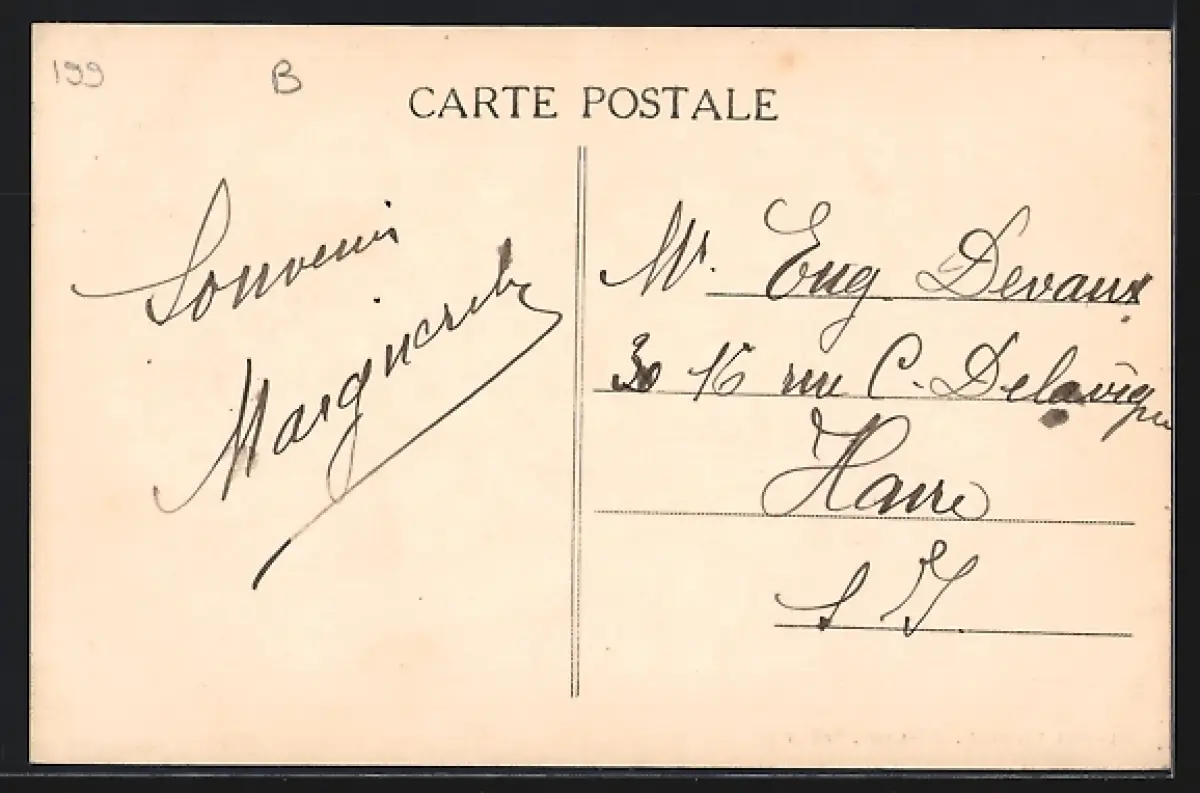 199 B
CARTE POSTALE
Souvenir
Marguerite
Mr. Eug. Devaux
30 16 rue C. Delavigne
Havre
S I.